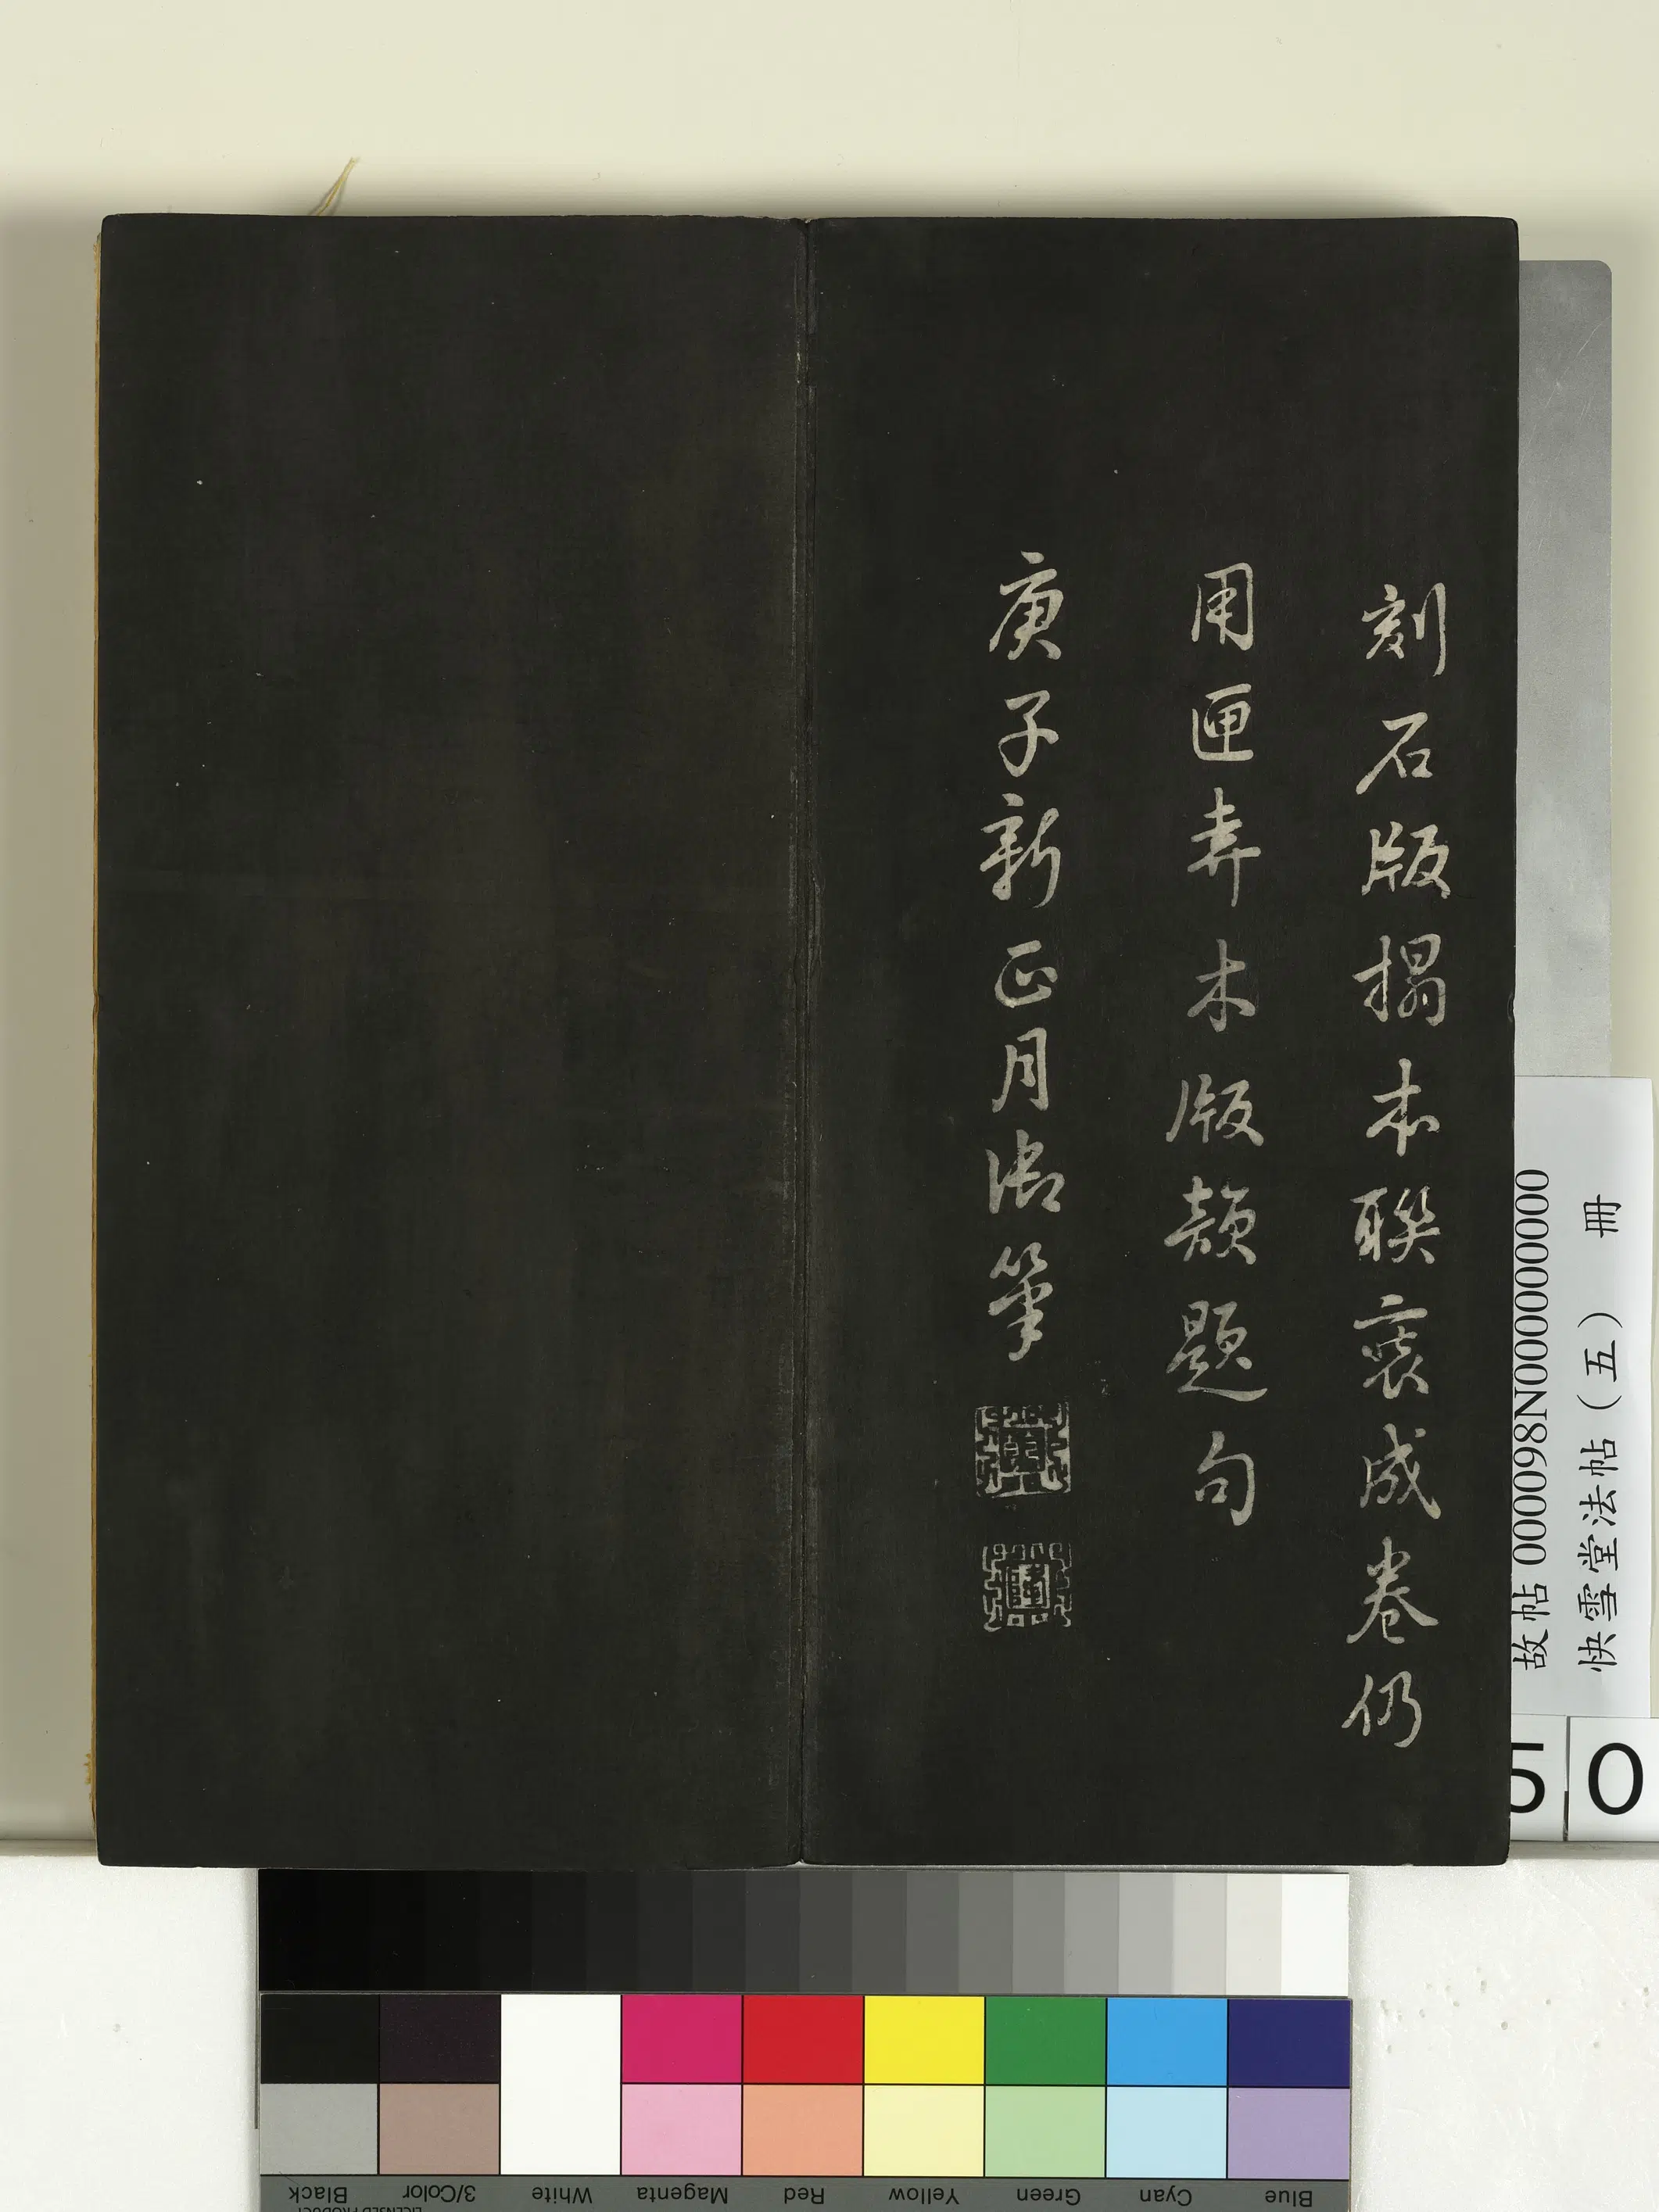 刻石版搨本聯裒成卷仍
用匣弆木版韻題句
庚子新正月御筆
故帖 000098N000000000
快雪堂法帖（五） 冊
50
Black
3/Color
White
Magenta
Red
Yellow
Green
Cyan
Blue
LICENSED PRODUCT